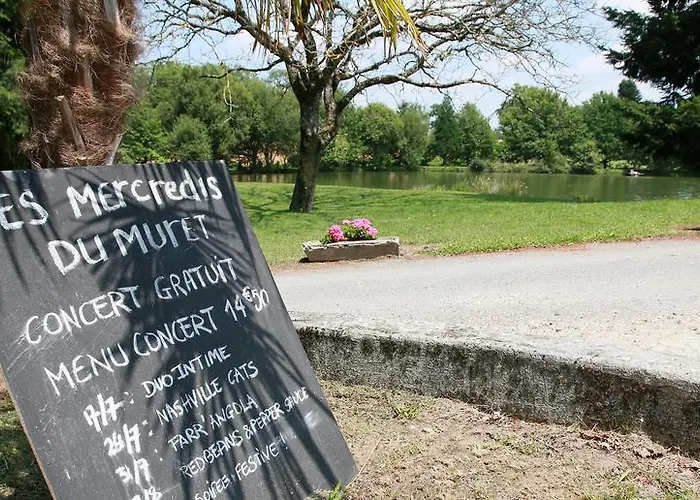 ES MERCREDIS
DU MURET
CONCERT GRATUIT
MENU CONCERT 14€50
17/7: DUO INTIME
24/7: NASHVILLE CATS
31/7: TARR'ANGOLA
RED BEANS & PEPPER SAUCE
SOIRÉE FESTIVE!